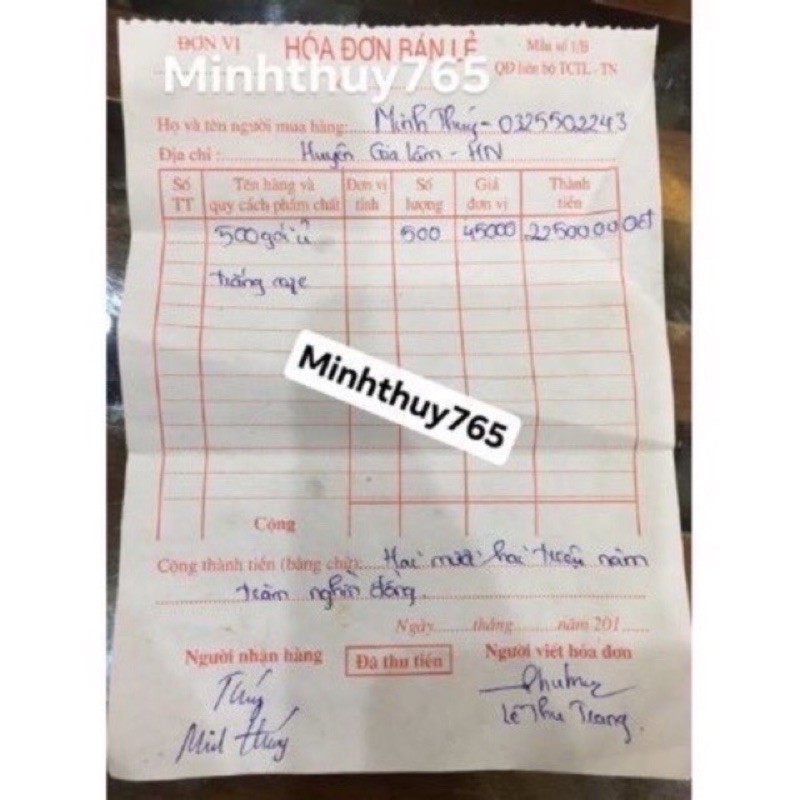 ĐƠN VỊ HÓA ĐƠN BÁN LẺ Mẫu số 1/B
QĐ liên bộ TCTL - TN
Minhthuy765
Họ và tên người mua hàng: Minh Thúy - 0325502243
Địa chỉ: Huyện Gia Lâm - HN
Số TT Tên hàng và quy cách phẩm chất Đơn vị tính Số lượng Giá đơn vị Thành tiền
500 gói ủ 500 45000 22500000
trắng
Minhthuy765
Cộng
Cộng thành tiền (bằng chữ): Hai mươi hai triệu năm
trăm nghìn đồng.
Ngày......tháng......năm 201......
Người nhận hàng Đã thu tiền Người viết hóa đơn
Thúy
Minh Thúy Lê Thu Trang